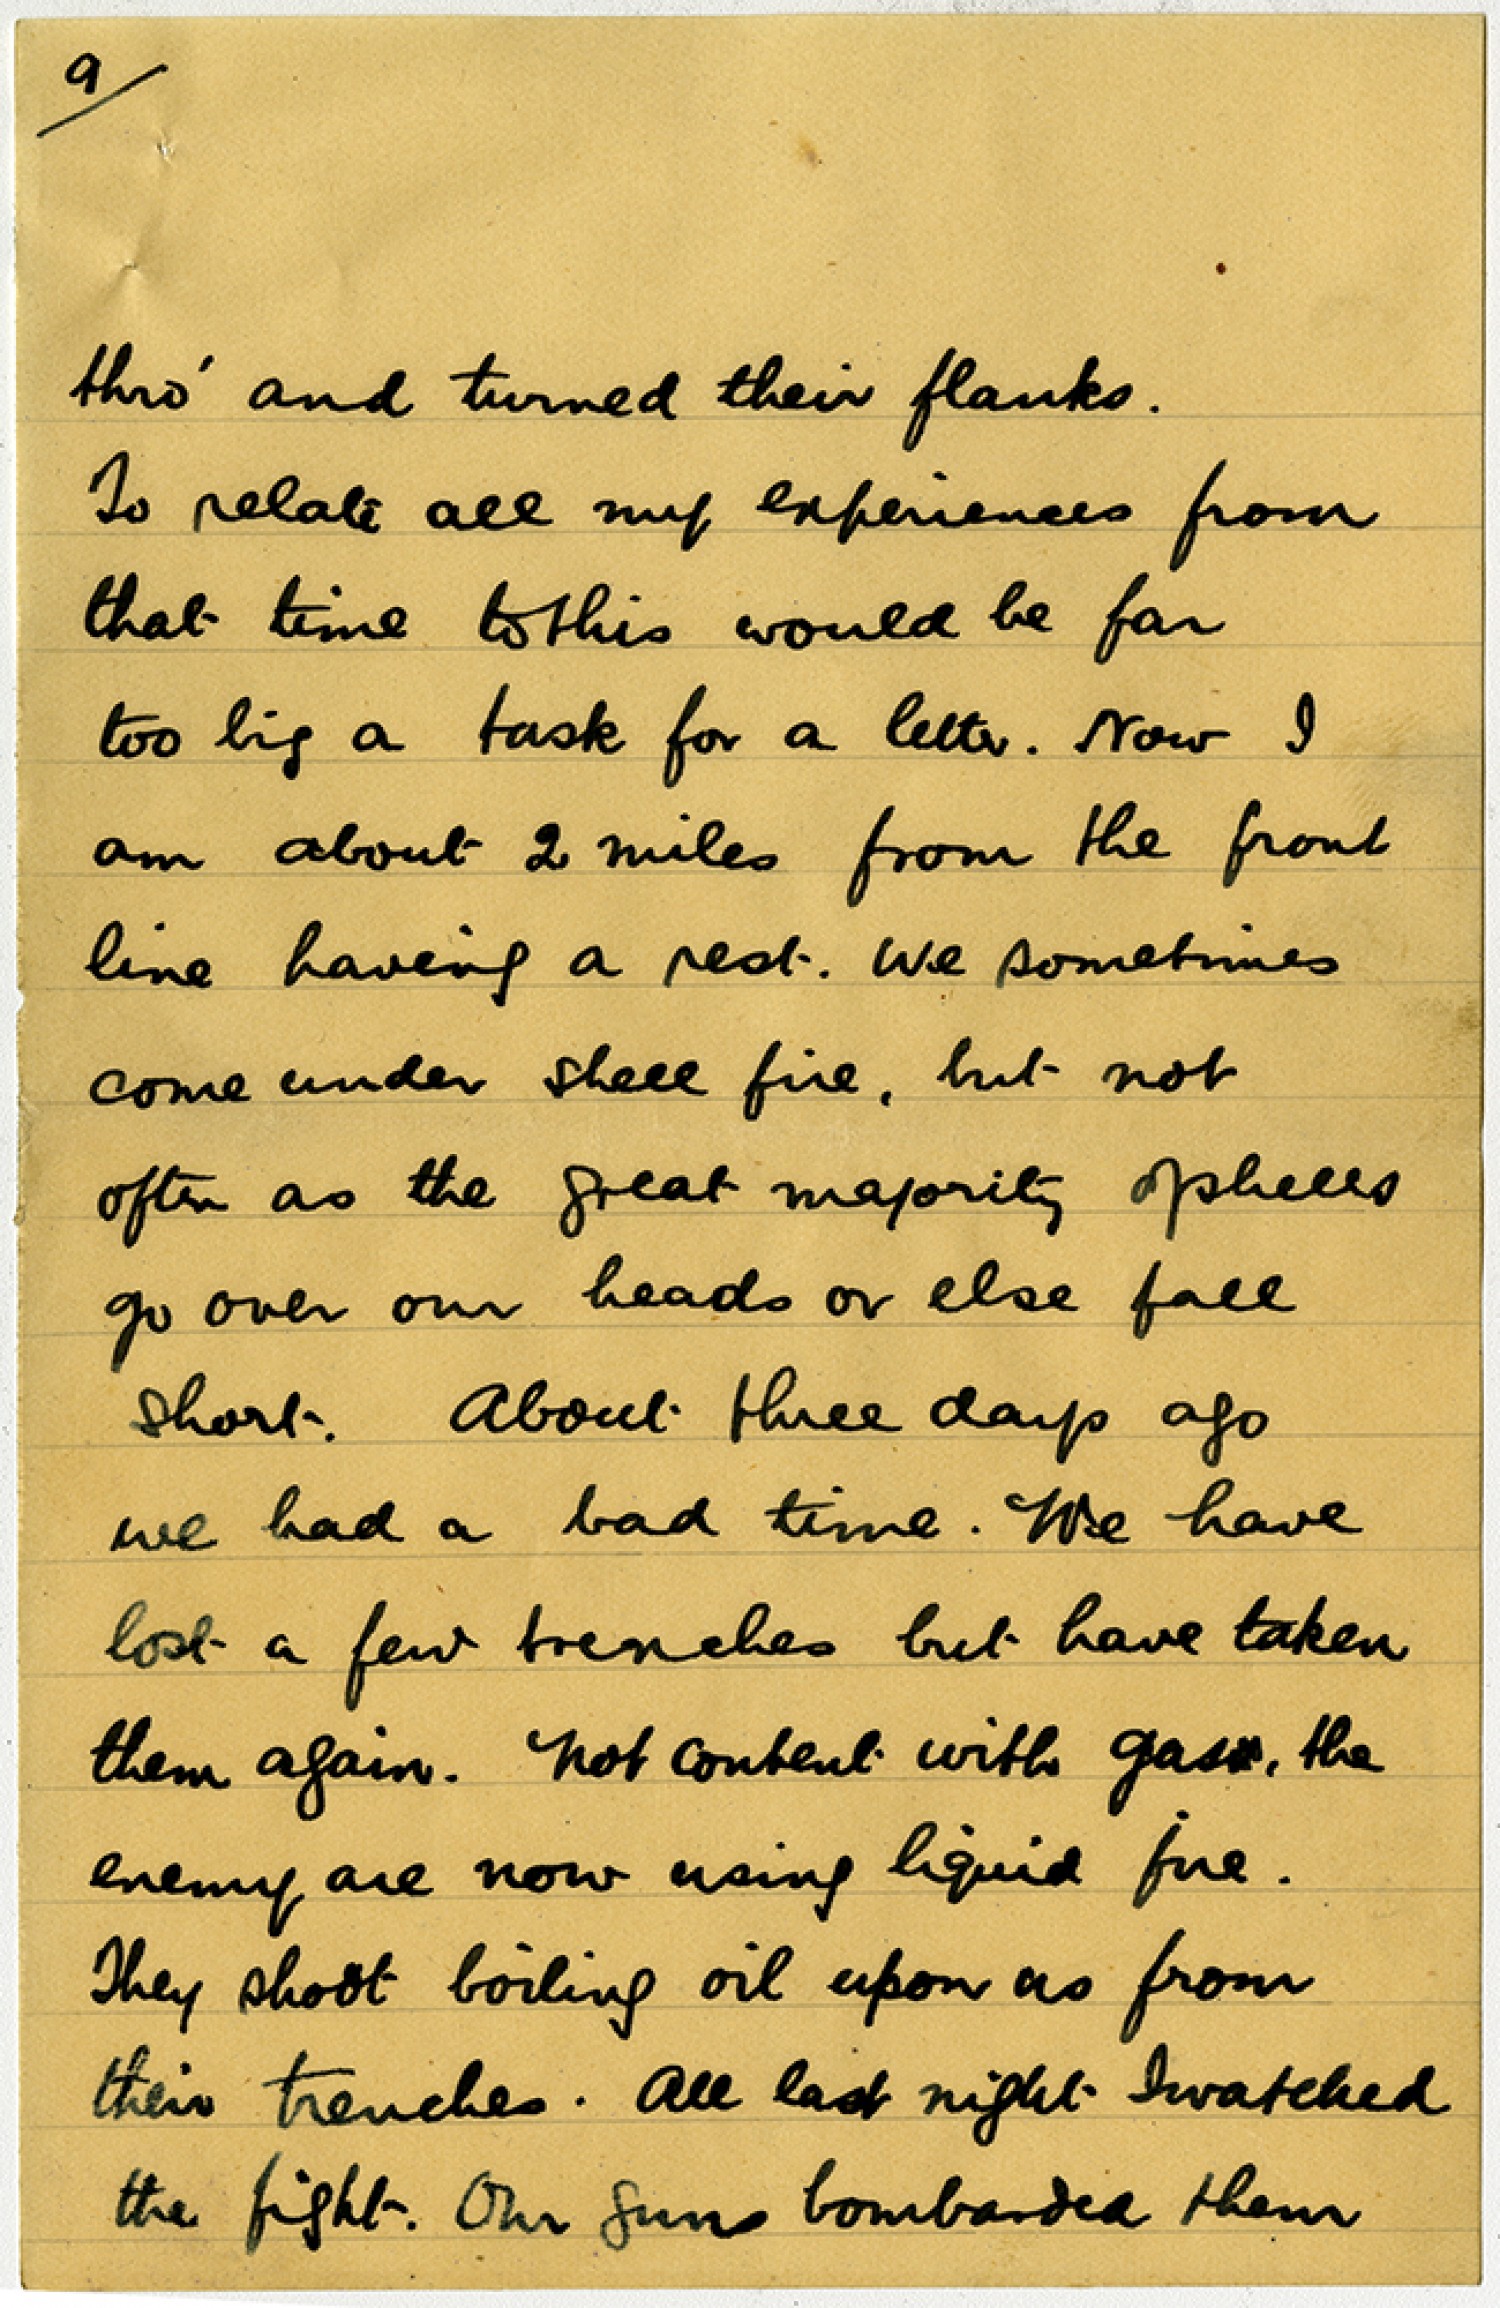 9/
thro' and turned their flanks.
To relate all my experiences from
that time to this would be far
too big a task for a letter. Now I
am about 2 miles from the front
line having a rest. We sometimes
come under shell fire, but not
often as the great majority of shells
go over our heads or else fall
short. About three days ago
we had a bad time. We have
lost a few trenches but have taken
them again. Not content with gas, the
enemy are now using liquid fire.
They shoot boiling oil upon us from
their trenches. All last night I watched
the fight. Our guns bombarded them